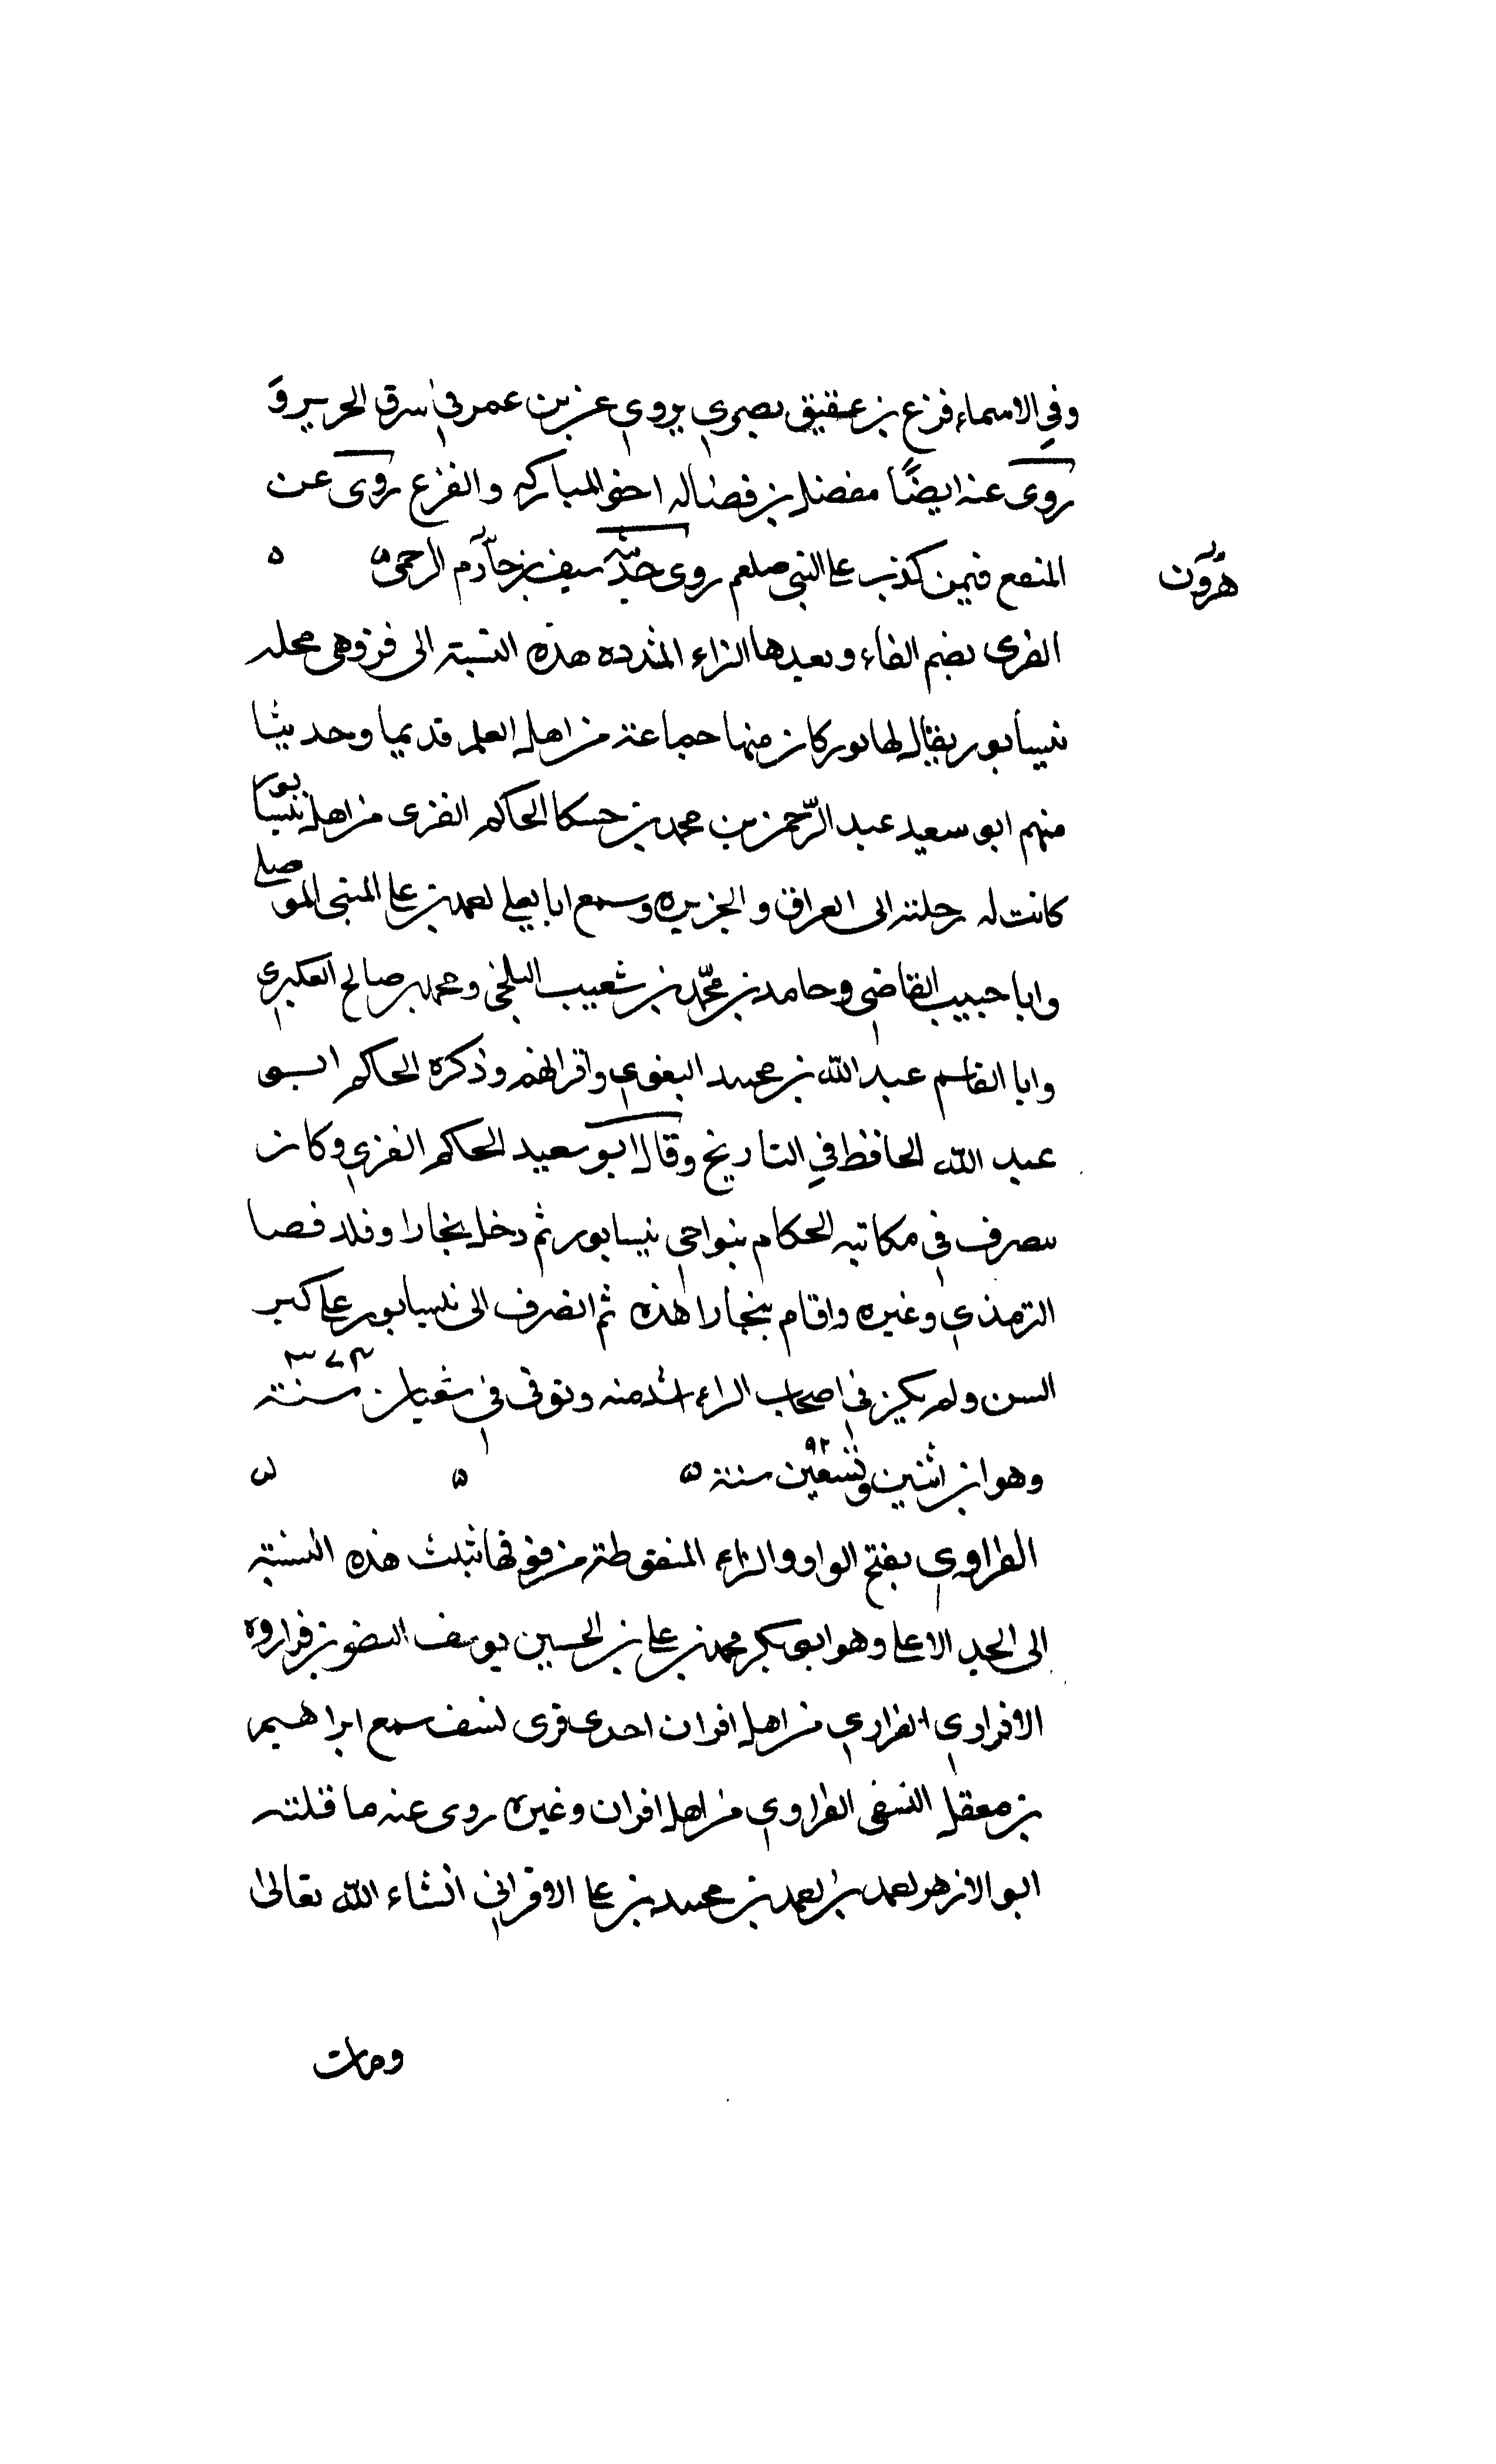 وفي الاسماء فزع بن عقيق بصري يروي عن بن عمر في سرق الحرير و
روى عنه ايضًا مفضل بن فضاله اخو المباركه والفزع روى عن
المنقع فيمن كذب على النبي صلعم روى حديثه سيف بن
هرون
الفزى بضم الفاء وبعدها الزاء المشدده هذه النسبة الى فز وهي محله
نيسابور يقال لها بوز كان منها جماعة من اهل العلم قديما وحديثا
منهم ابو سعيد عبد الرحمن بن محمد بن حسكا الحاكم الفزى من اهل نيسابور
كانت له رحلة الى العراق والجزيره وسمع ابا يعلي احمد بن على المثنى الموصلي
وابا حبيب القاضي وحامد بن محمد بن شعيب البلخي ومحمد بن صالح العكبري
وابا القاسم عبد الله بن محمد البغوي واقرانهم وذكره الحاكم ابو
عبد الله الحافظ في التاريخ وقال ابو سعيد الحاكم الفزي وكان
يتصرف في مكاتبه الحكام بنواحي نيسابور ثم دخل بخارا وقلد قضا
الترمذي وغيره واقام ببخارا لهذه ثم انصرف الى نيسابور على كبر
السن ولم يكن في اصحاب الراء اسند منه وتوفى في شعبان سنة ٣٧٤
وهو ابن اثنين وتسعين ٩٢ سنة
الفزاوي بفتح الواو والزاء المنقوطة من فوقها بثلث هذه النسبة
الى الجد الاعلى وهو ابو بكر محمد بن على بن الحسين يوسف النضر بن فزاروه
الافراوي الفزاري من اهل افران احدى قرى نسف سمع ابراهيم
بن معقل النسفى الفزاوي من اهل افران وغيره روى عنه ما قلته
ابو الازهر احمد بن احمد بن محمد بن على الافراني انشاء الله تعالى
ومات